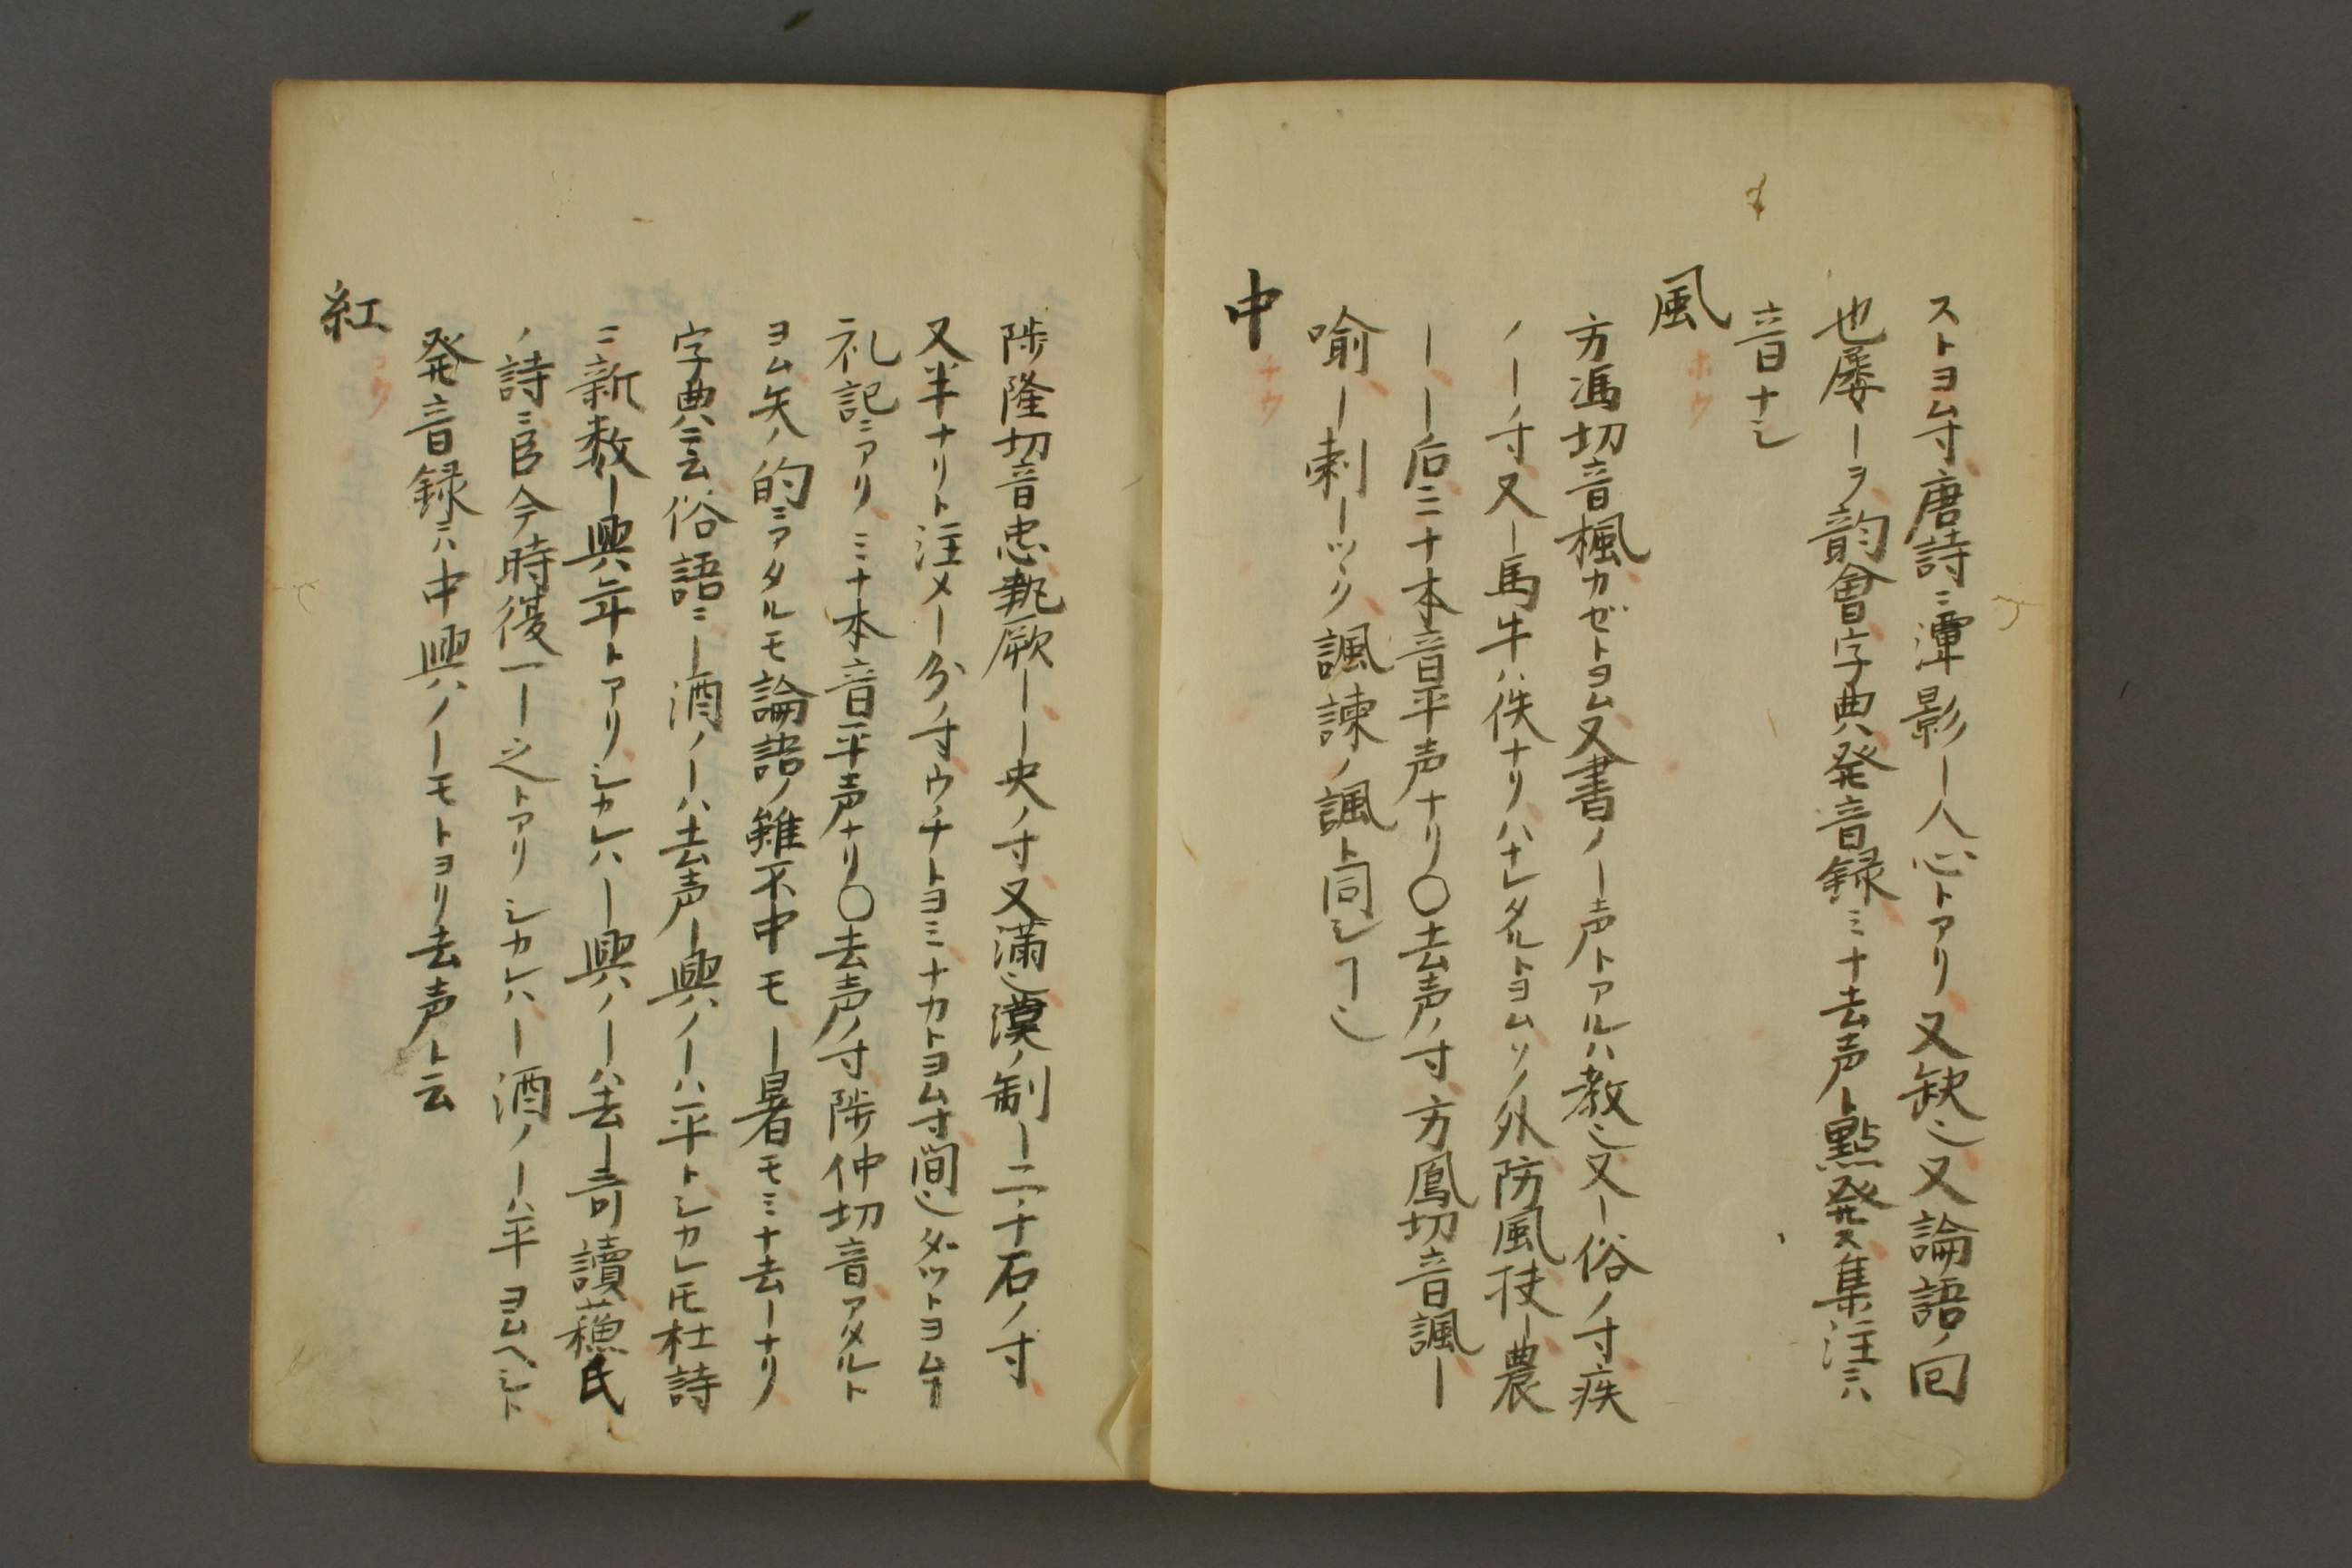 ストヨム寸唐詩ニ潭影ー人心トアリ又缺也又論語ノ回
也屡ーヲ韵會字典発音録ミナ去声ト點発ス集注ニハ
音ナシ
風 ホウ
方馮切音楓カゼトヨム又書ノー声トアルハ教也又ー俗ノ寸疾
ノーノ寸又ー馬牛ハ佚ナリハナレタルトヨムソノ外防風扶ー農
ーー后ミナ本音平声ナリ〇去声ノ寸方鳳切音諷ー
喩ー刺ーツク諷諫ノ諷ト同シヿ也
中 チウ
陟隆切音忠執厥ーー央ノ寸又滿也漢ノ制ー二千石ノ寸
又半ナリト注メー分ノ寸ウチトヨミナカトヨム寸間也ダットヨムヿ
礼記ニアリミナ本音平声ナリ〇去声ノ寸陟仲切音アタルト
ヨム矢ノ的ニアタルモ論語ノ雖不中モー暑モミナ去ーナリ
字典ニ云俗語ニー酒ノーハ去声ー興ノーハ平トシカレ𪜈杜詩
ニ新数ー興年トアリシカレハー興ノーハ去ー可讀蘓氏
ノ詩ニ臣今時復一ー之トアリシカレハー酒ノーハ平ヨムヘシト
発音録ニハ中興ノーモトヨリ去声ト云
紅 コウ